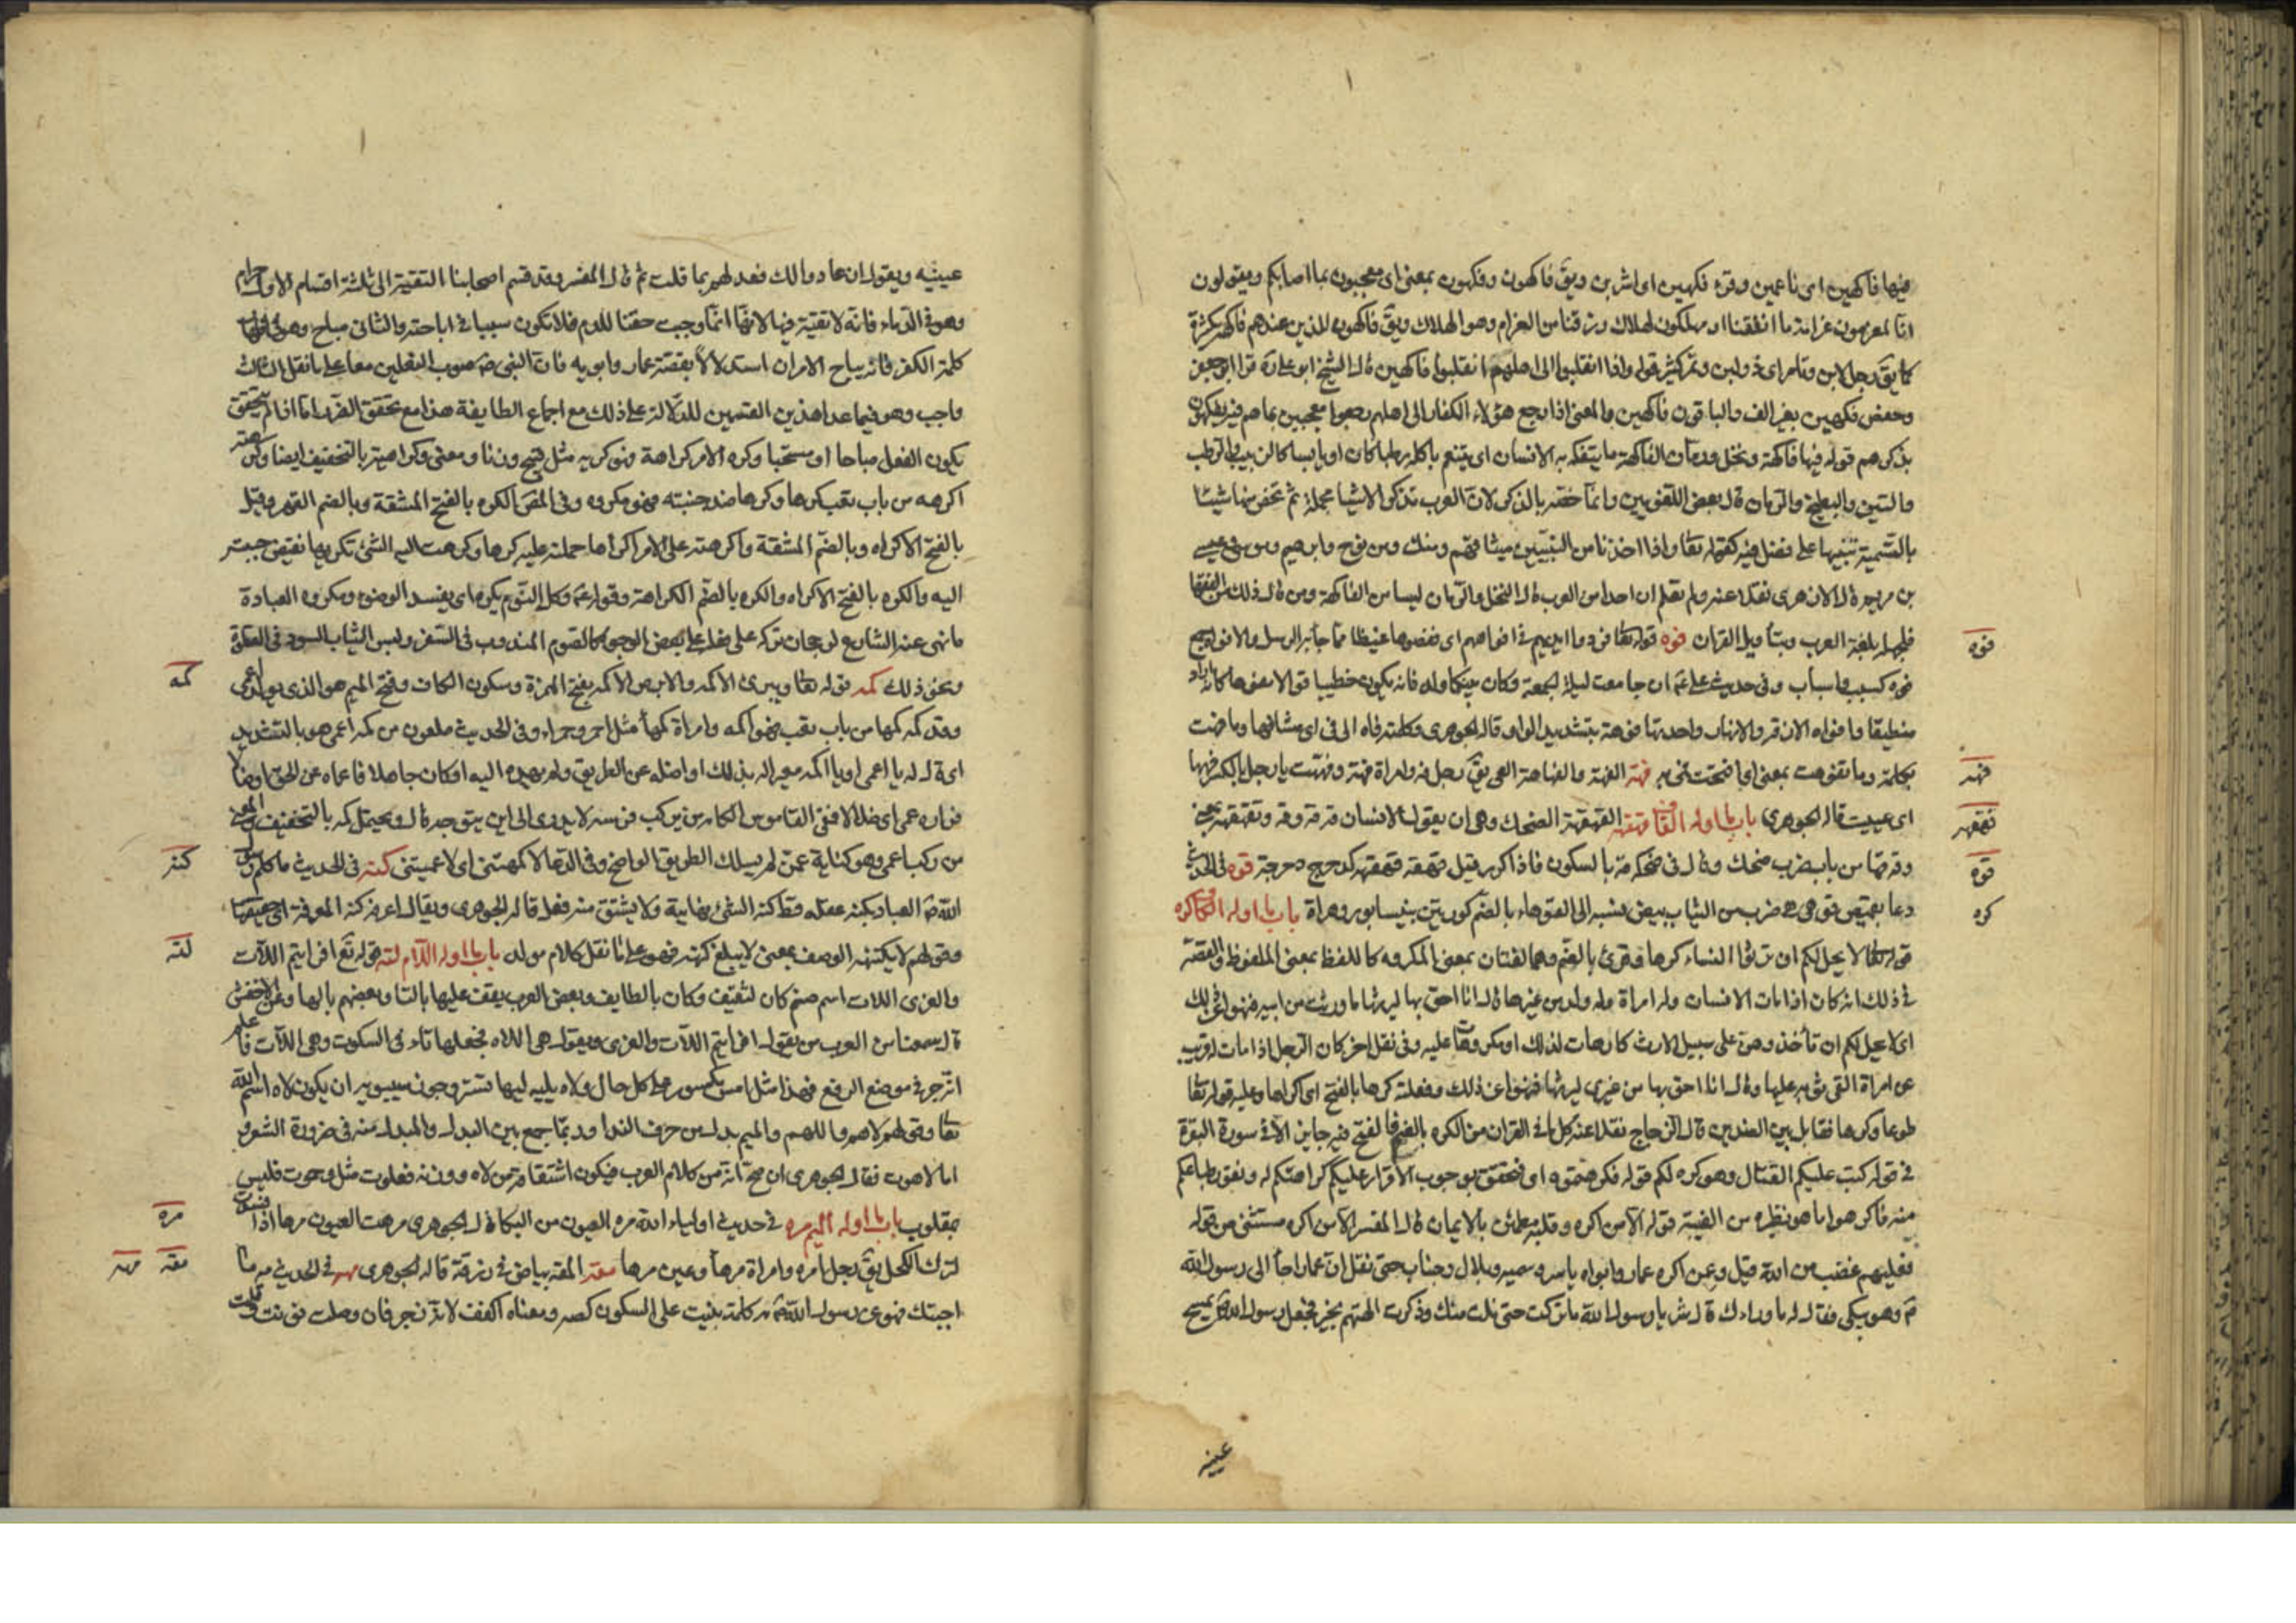 فيها فاكهين اى ناعمين وقرء فكهين اى اشرين ويق فاكهون وفكهون بمعنى اى معجبون بما اصابكم ويقولون
انا لمغرمون غرامة ما انفقنا او مهلكون لهلاك رزقنا من الغرام وهو الهلاك ويق فاكهون للذين عندهم فاكهة كثيرة
كما يق رجل لابن وتامر اى ذو لبن وتمر كثير قوله واذا انقلبوا الى اهلهم انقلبوا فاكهين قال الشيخ ابو على ره قرا ابو جعفر
وحفص فكهين بغير الف والباقون فاكهين والمعنى اذا رجع هؤلاء الكفار الى اهلهم رجعوا معجبين بما هم فيه يتفكهون
بذكرهم قوله فيها فاكهة ونخل ورمان الفاكهة ما يتفكه به الانسان اى يتنعم باكله رطبا كان او يابسا كالزبيب والرطب
والتين والبطيخ والرمان قال بعض اللغويين وانما خصه بالذكر لان العرب تذكر الاشيا مجملة ثم تخص منها شيئا
بالتسمية تنبيها على فضل فيه كقوله تعا واذا اخذنا من النبيين ميثاقهم ومنك ومن نوح وابرهيم وموسى وعيسى
بن مريم قال الازهرى نقلا عنه ولم نعلم ان احدا من العرب قال النخل والرمان ليسا من الفاكهة ومن قال ذلك من الفقها
فلجهله بلغة العرب وبتأويل القران فوه قوله تعا فردوا ايديهم فى افواههم اى عضوها غيظا مما جاء به الرسل والافواه جمع
فوه كسبب واسباب وفى حديث على عم ان جامعت ليلة الجمعة وكان بينكما ولد فانه يكون خطيبا قوالا مفوها كانه اراد
منطيقا وافواه الازقه والانهار واحدتها فوهة بتشديد الواو قاله الجوهرى وكلمته فاه الى فى اى مشافها وما فهت
بكلمة وما تفوهت بمعنى اى ما فتحت فمى به فهه الفهة والفهاهة العى يق رجل فه وامراة فهة وفههت يا رجل بالكسر فهها
اى عييت قاله الجوهرى باب ما اوله القاف قهقه القهقهة الضحك وهى ان يقول الانسان قه قه وقه وتقهقه بمعنى
وقه قها من باب ضرب ضحك وقال فى ضحكه قه بالسكون فاذا كرر قيل قهقه قهقهة كدحرج دحرجة قوه فى الحديث
دعا بقميص قوهى هو ضرب من الثياب بيض نسبه الى القوهاء بالضم كورة بين نيسابور وهراة باب ما اوله الكاف كره
قوله تعا لا يحل لكم ان ترثوا النساء كرها وقرئ بالضم وهما لغتان بمعنى المكروه كاللفظ بمعنى الملفوظ والقصة
فى ذلك انه كان اذا مات الانسان وله امراة وله ولد من غيرها قال انا احق بها ليرثها ما ورث من ابيه فنهوا عن ذلك
اى لا يحل لكم ان تأخذوهن على سبيل الارث كارهات لذلك او مكروهات عليه وفى نقل اخر كان الرجل اذا مات لقريب
عن امراة القى ثوبه عليها وقال انا احق بها من غيرى ليرثها فنهوا عن ذلك وفعلته كرها بالفتح اى اكراها وعليه قوله تعا
طوعا وكرها فقابل بين الضدين قال الزجاج نقلا عنه كل ما فى القران من الكره بالضم فالفتح فيه جايز الا فى سورة البقرة
فى قوله كتب عليكم القتال وهو كره لكم قوله فكرهتموه اى فتحقق بوجوب الاقرار عليكم كراهتكم له ونفور طباعكم
منه فاكرهوا ما هو نظيره من الغيبة قوله الا من اكره وقلبه مطمئن بالايمان قال المفسر الا من اكره مستثنى من قوله
فعليهم غضب من الله قيل وعن اكره عمار وابواه ياسر وسميه وبلال وخباب حتى نقل ان عمارا جاء الى رسول الله
ص وهو يبكى فقال له ما وراءك قال شر يا رسول الله ما تركت حتى نلت منك وذكرت الهتهم بخير فجعل رسول الله ص يمسح
عينيه
فوه
فهه
قهقهه
قوه
كره
عينيه ويقول ان عادوا لك فعد لهم بما قلت ثم قال المفسر وقد قسم اصحابنا التقية الى ثلثة اقسام الاول حرام
وهو فى الدماء فانه لا تقية فيها لانها انما وجبت حقنا للدم فلا تكون سببا فى اباحته والثانى مباح وهو فى
كلمة الكفر فانه يباح الامران استدلالا بقصة عمار وابويه فان النبى ص صوب الفعلين معا على ما نقل الثالث
واجب وهو فيما عدا هذين القسمين للدلالة على ذلك مع اجماع الطايفة هذا مع تحقق الضرر اما اذا لم يتحقق
يكون الفعل مباحا او مستحبا وكره الامر كراهة فهو كريه مثل قبح وزنا ومعنى وكراهية بالتخفيف ايضا وكرهته
اكرهه من باب تعب كرها وكرها ضد حببته فهو مكروه وفى المص الكره بالفتح المشقة وبالضم القهر وقيل
بالفتح الاكراه وبالضم المشقة واكرهته على الامر اكراها حملته عليه كرها وكرهت اليه الشئ تكريها نقيض حببته
اليه والكره بالفتح الاكراه والكره بالضم الكراهة وقوله عم وكل النوم يكره اى يفسد الوضوء ومكروه العبادة
ما نهى عنه الشارع لرجحان تركه على فعله على بعض الوجوه كالصوم المندوب فى السفر ولبس الثياب السود فى الصلوة
ونحو ذلك كمه قوله تعا ويبرئ الاكمه والابرص الاكمه بفتح الهمزة وسكون الكاف وفتح الميم هو الذى يولد اعمى
وقد كمه كمها من باب تعب فهو اكمه وامراة كمهاء مثل احمر وحمراء وفى الحديث ملعون من كمه اعمى هو بالتشديد
اى قال له يا اعمى او يا اكمه معيرا له بذلك او اضله عن الطريق ولم يهده اليه او كان جاهلا فاعماه عن الحق او ضالا
فزاده عمى اى ضلالا ففى القاموس الكامه من يركب فرسه لا يدرى الى اين يتوجه قال ويحتمل كمه بالتخفيف والمعنى
من ركب اعمى وهو كناية عمن لم يسلك الطريق الواضح وفى الدعا لا كمهتنى اى لا عميتنى كنه فى الحديث ما كلم رسول
الله ص العباد بكنه عقله قط كنه الشئ نهايته ولا يشتق منه فعل قاله الجوهرى ويقال اعرفه كنه المعرفة اى حقيقتها
وقولهم لا يكتنهه الوصف بمعنى لا يبلغ كنهه فهو على ما نقل كلام مولد باب ما اوله اللام لته قوله تع افرايتم اللات
والعزى اللات اسم صنم كان لثقيف وكان بالطايف وبعض العرب يقف عليها بالتا وبعضهم بالها وعن الاخفش
قال سمعنا من العرب من يقول افرايتم اللات والعزى ويقول هى اللاه فجعلها تاء فى السكوت وهى اللات فاعلم
انه جر فى موضع الرفع فهذا مثل امس مكسور على كل حال ولاه يليه ليها تستر وجوز سيبويه ان يكون لاه اسم الله
تعا وقولهم لاهم واللهم والميم بدل من حرف الندا وربما جمع بين البدل والمبدل منه فى ضرورة الشعر و
اما لاهوت فقال الجوهرى ان صح انه من كلام العرب فيكون اشتقاقه من لاه ووزنه فعلوت مثل رحموت فليس
بمقلوب باب ما اوله الميم مره فى حديث اولياء الله مره العيون من البكا قال الجوهرى مرهت العيون مرها اذا فسدت
لترك الكحل يق رجل امره وامراة مرهاء وعين مرها مقه المقه بياض فى زرقة قاله الجوهرى مهه فى الحديث مه ما
اجبتك فهو عن رسول الله ص مه كلمة بنيت على السكون كصه ومعناه اكفف لانه زجر فان وصلت نونت وقلت
كمه
كنه
لته
مره
مقه مهه